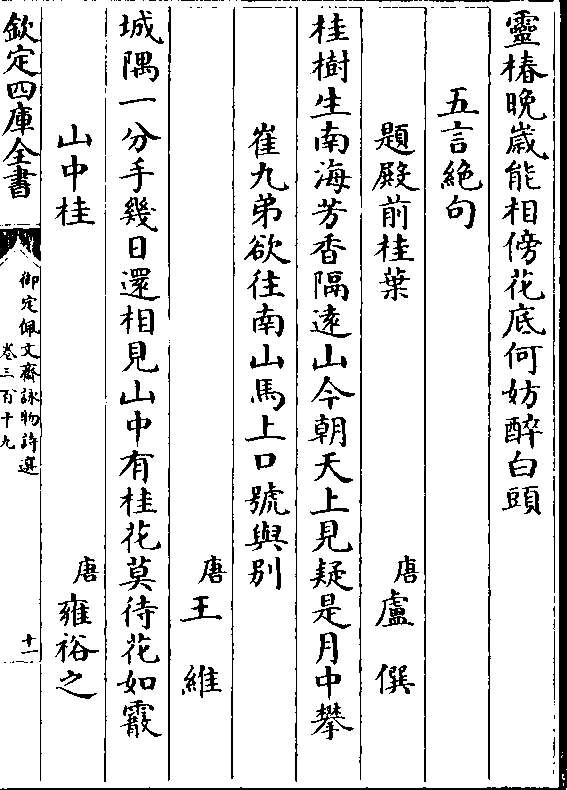 靈椿晚歳能相傍花底何妨醉白頭
五言絶句
題殿前桂葉
唐盧僎
桂樹生南海芳香隔逺山今朝天上見疑是月中攀
崔九弟欲往南山馬上口號與别
唐王維
城隅一分手幾日還相見山中有桂花莫待花如霰
山中桂
唐雍裕之
欽定四庫全書
御定佩文齋詠物詩選
卷三百十九
十一